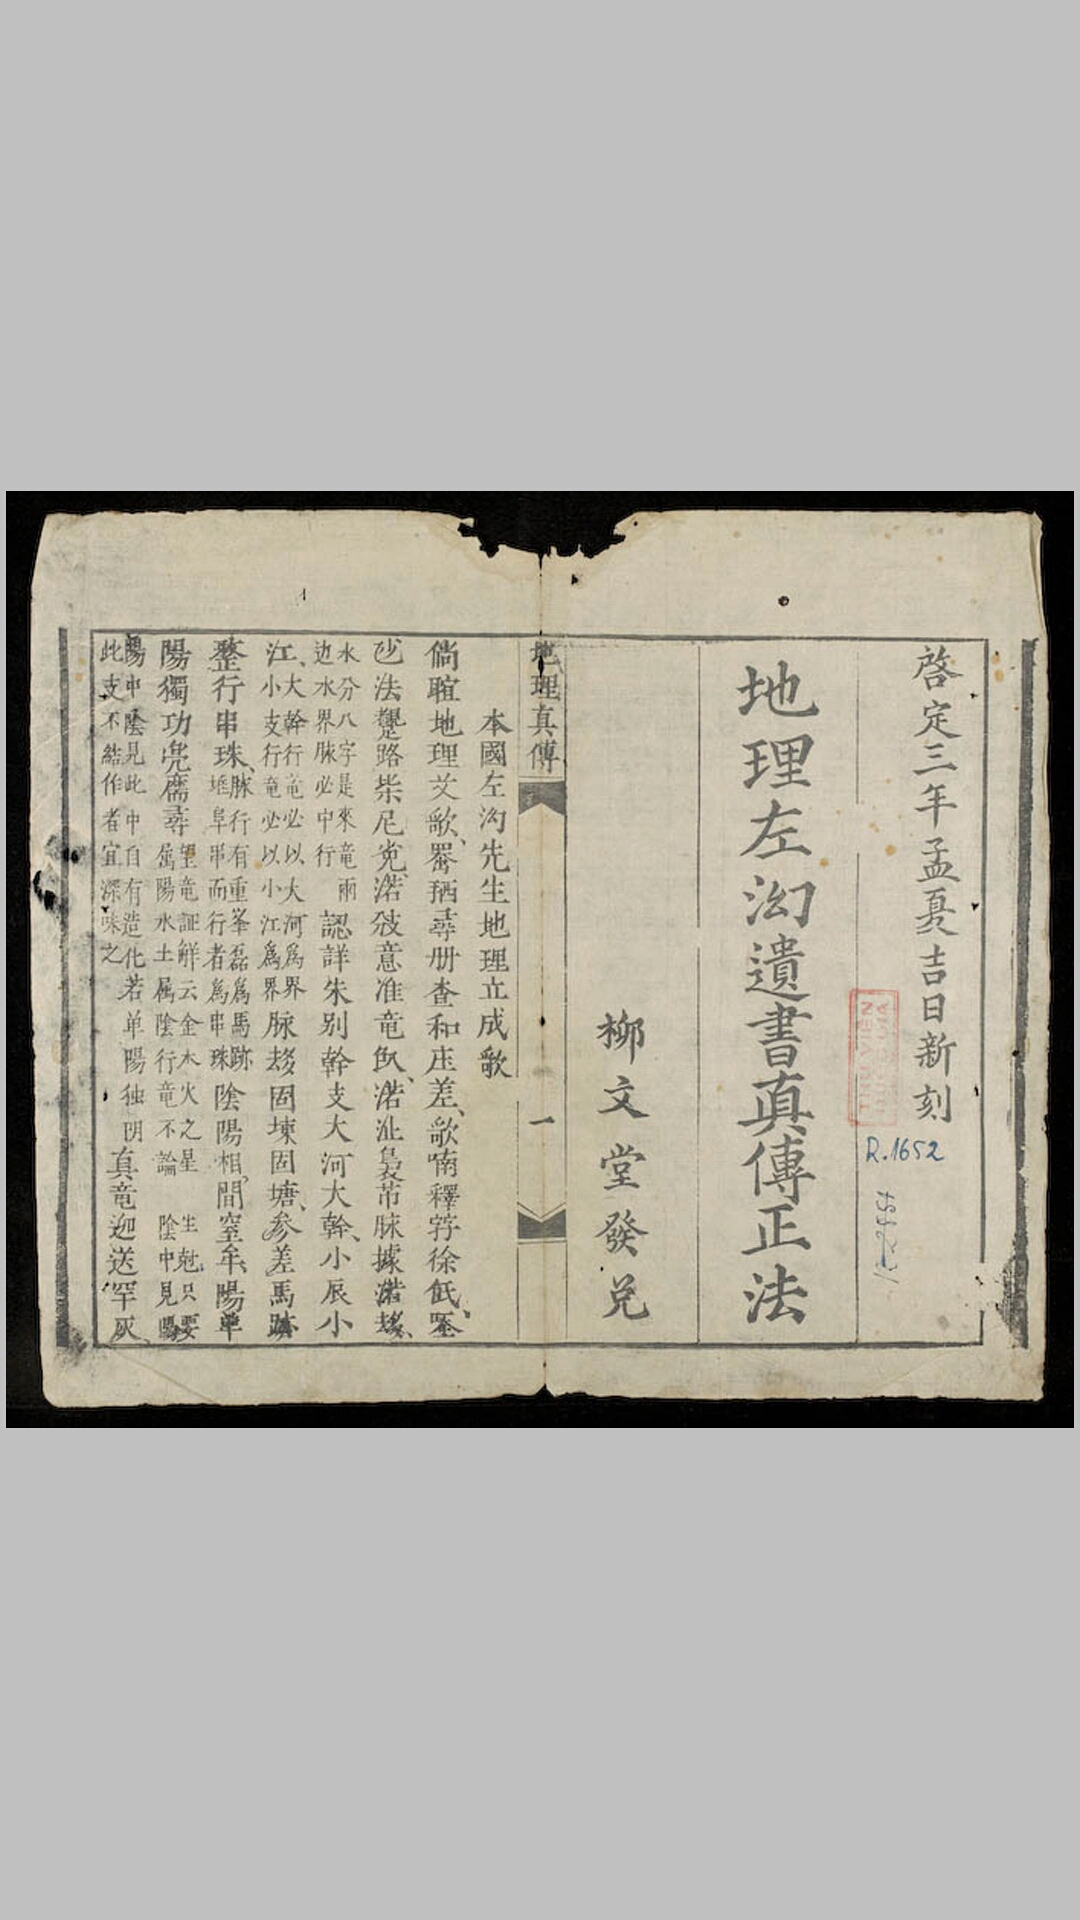 啓定三年孟夏吉日新刻
R.1652
地理左㳑遺書真傳正法
柳文堂發兌
地理真傳
一
本國左㳑先生地理立成歌
倘暄地理文歌畧𢬣尋册查和庒差歌喃釋符徐
法路柴尼意准竜脉據
水分八字是來竜兩
边水界脉必中行
認詳朱別幹支大河大幹小辰小
江
大幹行竜必以大河爲界
小支行竜必以小江爲界
脉𠄼固堜固塘參差馬跡
整行串珠
脉行有重峯磊爲馬跡
堆阜串而行者爲串珠
陰陽相間窒牟陽单
陽獨功㒹𢋠尋
望竜証觧云金木火之星
属陽水土属陰行竜不論
生尅只要
陰中見陽
陽中陰見此中自有造化若单陽独阴
此支不結作者宜深味之
真竜迎送罕灰